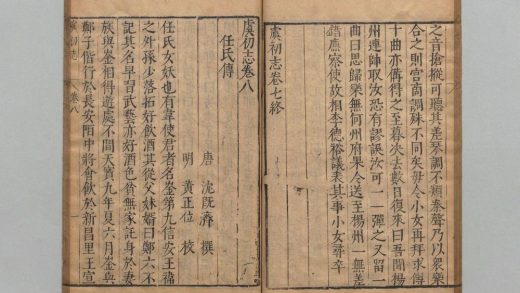 之音搶摐可聽其差琴調不類秦聲乃以衆樂
合之則宮商調殊不同矣母令小女再拜求傳
十曲亦備得之至暮次去數日復來曰吾聞楊
州連帥取汝恐有謬誤汝可一一彈之又留一
曲曰思歸樂無何州府果令送至楊州一無差
錯廉察使故相李德裕議表其事小女尋卒
虞初志卷七終
虞初志卷八
任氏傳
唐 沈旣濟 撰
明 黃正位 校
任氏女妖也有韋使君者名崟第九信安王禕
之外孫少落拓好飲酒其從父妹壻曰鄭六不
記其名早習武藝亦好酒色貧無家託身於妻
族與崟相得遊處不間天寶九年夏六月崟與
鄭子偕行於長安陌中將會飲於新昌里王宣
虞初志 卷八 一